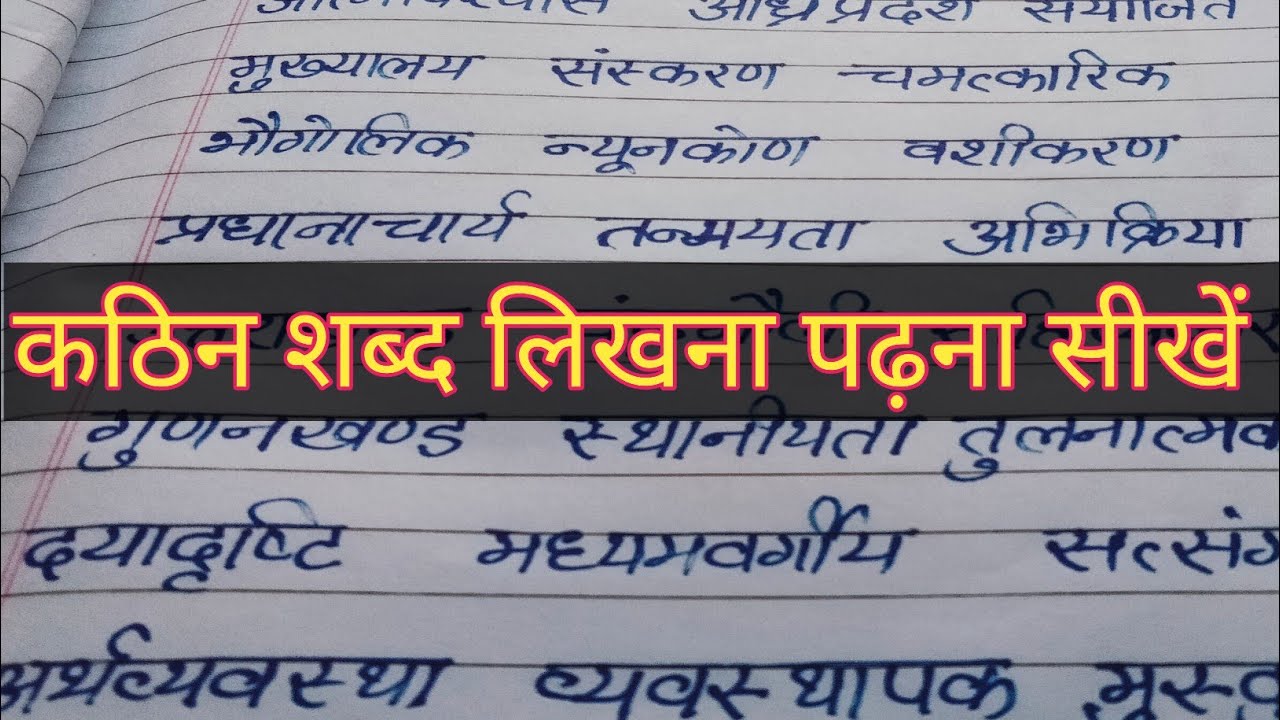 आत्मविश्वास आंध्रप्रदेश संयोजित
मुख्यालय संस्करण चमत्कारिक
भौगोलिक न्यूनकोण वशीकरण
प्रधानाचार्य तन्मयता अभिक्रिया
कठिन शब्द लिखना पढ़ना सीखें
गुणनखण्ड स्थानीयता तुलनात्मक
दयादृष्टि मध्यमवर्गीय सत्संग
अर्थव्यवस्था व्यवस्थापक